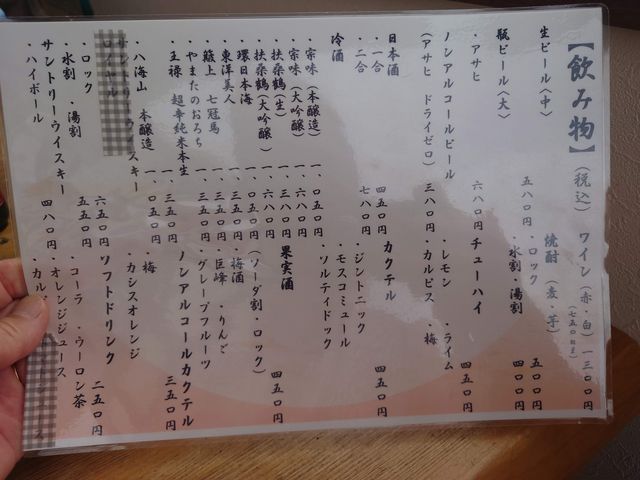 【飲み物】(税込)
生ビール〈中〉 五八〇円
瓶ビール〈大〉
・アサヒ 六八〇円
ノンアルコールビール
(アサヒ ドライゼロ) 三八〇円
日本酒
・一合 四五〇円
・二合 七八〇円
冷酒
・宗味(本醸造) 一、〇五〇円
・宗味(大吟醸) 一、六八〇円
・扶桑鶴(生) 一、三八〇円
・扶桑鶴(大吟醸) 一、六八〇円
・環日本海 一、〇五〇円
・東洋美人 一、三五〇円
・簸上 七冠馬 一、三五〇円
・やまたのおろち 一、三五〇円
・王禄 超辛純米本生 一、三五〇円
・八海山 本醸造 一、〇五〇円
サントリーウイスキー
ロイヤル
・ロック 六五〇円
・水割 ・湯割 五五〇円
サントリーウイスキー
・ハイボール 四八〇円
ワイン(赤・白) 一三〇〇円
(七五〇
焼酎(麦・芋)
・ロック 五〇〇円
・水割 ・湯割 四〇〇円
チューハイ 四五〇円
・レモン ・ライム
・カルピス ・梅
カクテル 四五〇円
・ジントニック
・モスコミュール
・ソルティドック
果実酒 四五〇円
(ソーダ割・ロック)
・梅酒 ・りんご
・巨峰
・グレープフルーツ
ノンアルコールカクテル 三五〇円
・梅
・カシスオレンジ
ソフトドリンク 二五〇円
・コーラ ・ウーロン茶
・オレンジジュース
・カル